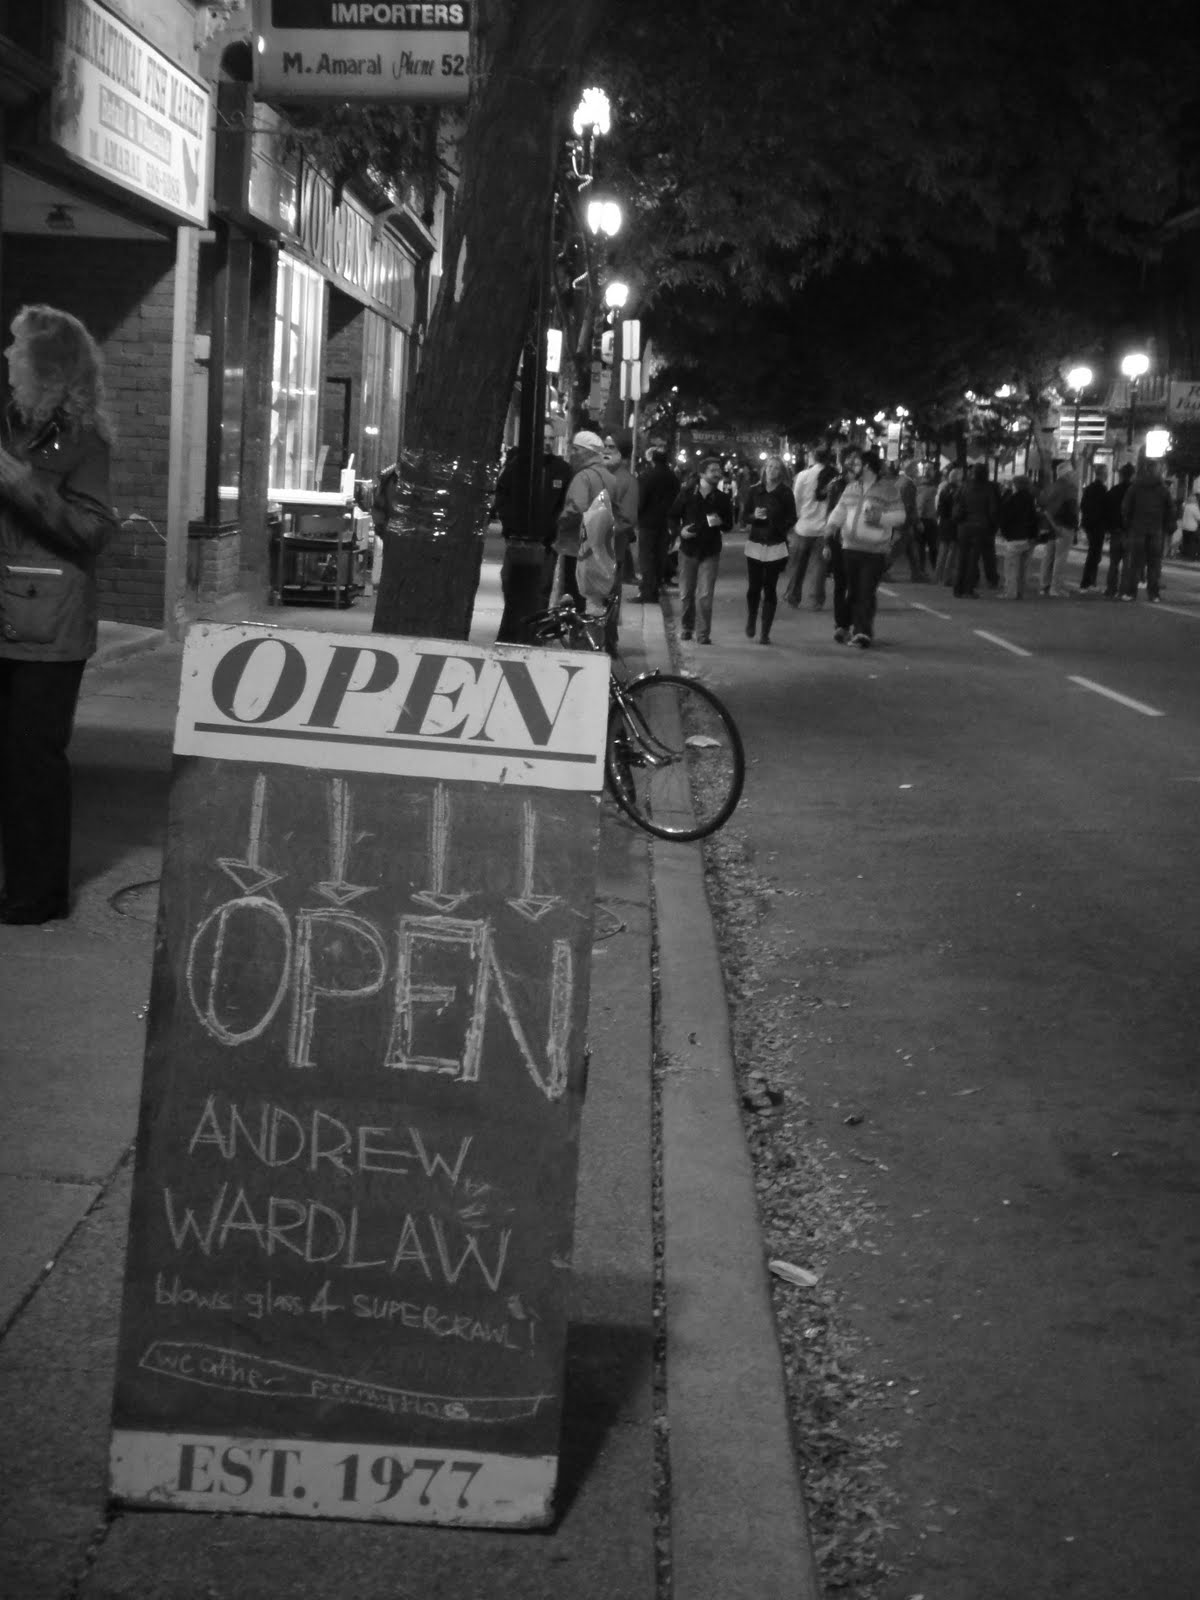 IMPORTERS
M. Amaral Phone 52
ERNATIONAL FISH MARKET
Retail & Wholesale
M. AMARAL
OPEN
OPEN
ANDREW
WARDLAW
blows glass 4 SUPERCRAWL!
weather permitting
EST. 1977
SUPERCRAWL